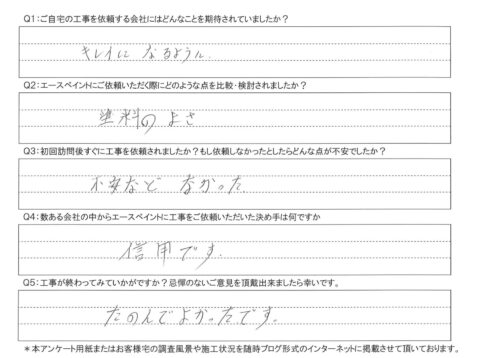 Q1:ご自宅の工事を依頼する会社にはどんなことを期待されていましたか？
キレイに なるように
Q2:エースペイントにご依頼いただく際にどのような点を比較・検討されましたか？
塗料の よさ
Q3:初回訪問後すぐに工事を依頼されましたか？もし依頼しなかったとしたらどんな点が不安でしたか？
不安など なかった
Q4:数ある会社の中からエースペイントに工事をご依頼いただいた決め手は何ですか
信用です.
Q5:工事が終わってみていかがですか？忌憚のないご意見を頂戴出来ましたら幸いです。
たのんでよかったです。
＊本アンケート用紙またはお客様宅の調査風景や施工状況を随時ブログ形式のインターネットに掲載させて頂いております。